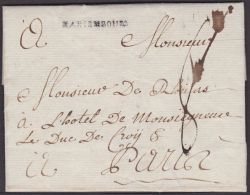 MARIEMBOURG
A Monsieur
Monsieur De
à L'hotel de Monseigneur
Le Duc De Croy
A Paris